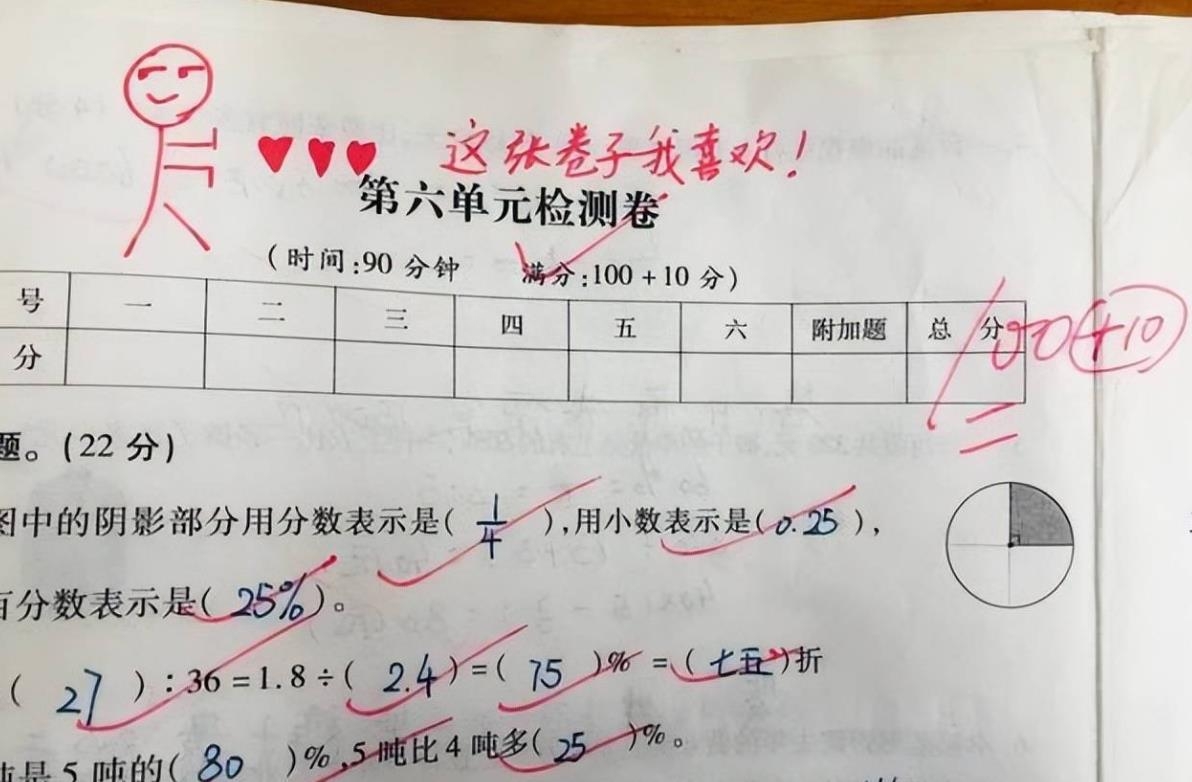 这张卷子我喜欢!
第六单元检测卷
(时间:90 分钟 满分:100+10 分)
号 一 二 三 四 五 六 附加题 总 分
分 100+10
题。(22 分)
图中的阴影部分用分数表示是( 1/4 ),用小数表示是( 0.25 ),
百分数表示是( 25% )。
( 27 ):36=1.8÷( 2.4 )=( 75 )%=( 七五 )折
吨是 5 吨的( 80 )%,5 吨比 4 吨多( 25 )%。